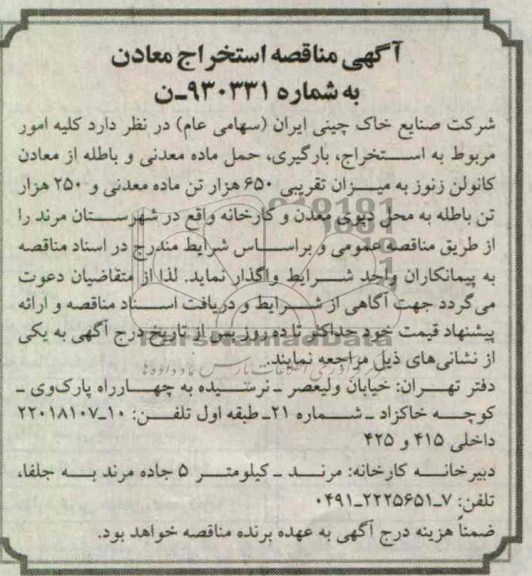 آگهی مناقصه استخراج معادن
به شماره ۹۳۰۳۳۱-ن
شرکت صنایع خاک چینی ایران (سهامی عام) در نظر دارد کلیه امور
مربوط به استخراج، بارگیری، حمل ماده معدنی و باطله از معادن
کائولن زنوز به میزان تقریبی ۶۵۰ هزار تن ماده معدنی و ۲۵۰ هزار
تن باطله به محل دپوی معدن و کارخانه واقع در شهرستان مرند را
از طریق مناقصه عمومی و براساس شرایط مندرج در اسناد مناقصه
به پیمانکاران واجد شرایط واگذار نماید. لذا از متقاضیان دعوت
می‌گردد جهت آگاهی از شرایط و دریافت اسناد مناقصه و ارائه
پیشنهاد قیمت خود حداکثر تا ده روز پس از تاریخ درج آگهی به یکی
از نشانی‌های ذیل مراجعه نمایند.
دفتر تهران: خیابان ولیعصر - نرسیده به چهارراه پارک‌وی -
کوچه خاکزاد - شماره ۲۱- طبقه اول تلفن: ۱۰-۲۲۰۱۸۱۰۷
داخلی ۴۱۵ و ۴۲۵
دبیرخانه کارخانه: مرند - کیلومتر ۵ جاده مرند به جلفا،
تلفن: ۷-۲۲۲۵۶۵۱-۰۴۹۱
ضمناً هزینه درج آگهی به عهده برنده مناقصه خواهد بود.